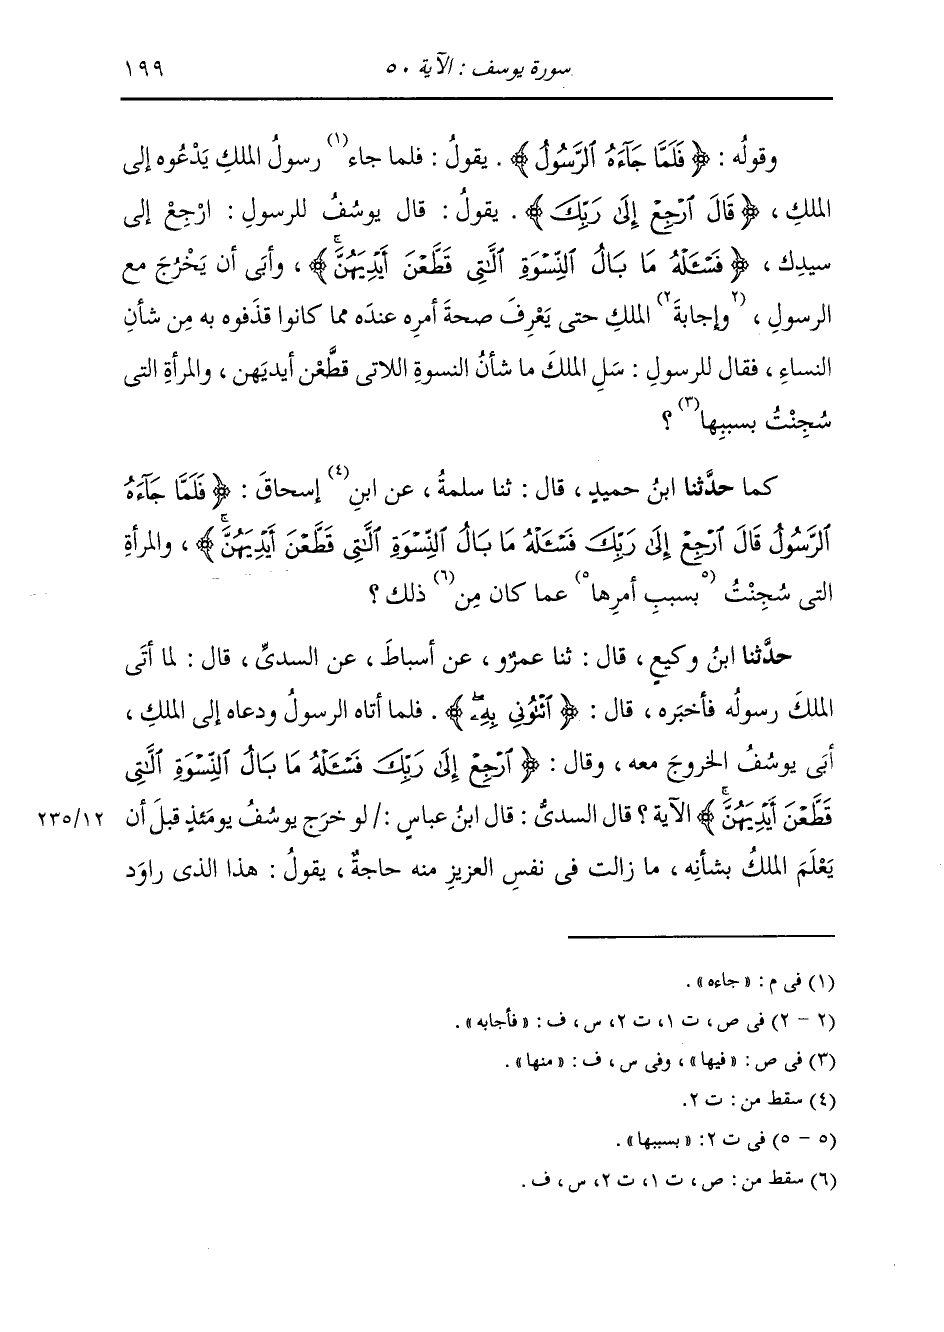 سورة يوسف : الآية ٥٠
١٩٩
وقولُه : ﴿ فَلَمَّا جَآءَهُ ٱلرَّسُولُ ﴾ . يقولُ : فلما جاء(١) رسولُ الملكِ يَدْعُوه إلى
الملكِ ، ﴿ قَالَ ٱرْجِعْ إِلَىٰ رَبِّكَ ﴾ . يقولُ : قال يوسُفُ للرسولِ : ارْجِعْ إلى
سيدِك ، ﴿ فَسْـَٔلْهُ مَا بَالُ ٱلنِّسْوَةِ ٱلَّـٰتِى قَطَّعْنَ أَيْدِيَهُنَّۚ ﴾ ، وأبَى أن يَخْرُجَ مع
الرسولِ ، (٢وإجابةَ٢) الملكِ حتى يَعْرِفَ صحةَ أمرِه عندَه مما كانوا قذَفوه به مِن شأنِ
النساءِ ، فقال للرسولِ : سَلِ الملكَ ما شأنُ النسوةِ اللاتى قطَّعْن أيديَهن ، والمرأةِ التى
سُجِنْتُ بسببِها(٣) ؟
كما حدَّثنا ابنُ حميدٍ ، قال : ثنا سلمةُ ، عن ابنِ(٤) إسحاقَ : ﴿ فَلَمَّا جَآءَهُ
ٱلرَّسُولُ قَالَ ٱرْجِعْ إِلَىٰ رَبِّكَ فَسْـَٔلْهُ مَا بَالُ ٱلنِّسْوَةِ ٱلَّـٰتِى قَطَّعْنَ أَيْدِيَهُنَّۚ ﴾ ، والمرأةِ
التى سُجِنْتُ (٥بسببِ أمرِها٥) عما كان مِن(٦) ذلك ؟
حدَّثنا ابنُ وكيعٍ ، قال : ثنا عمرٌو ، عن أسباطَ ، عن السدىِّ ، قال : لما أتَى
الملكَ رسولُه فأخبَره ، قال : ﴿ ٱئْتُونِى بِهِۦۖ ﴾ . فلما أتاه الرسولُ ودعاه إلى الملكِ ،
أبَى يوسُفُ الخروجَ معه ، وقال : ﴿ ٱرْجِعْ إِلَىٰ رَبِّكَ فَسْـَٔلْهُ مَا بَالُ ٱلنِّسْوَةِ ٱلَّـٰتِى
قَطَّعْنَ أَيْدِيَهُنَّۚ ﴾ الآية ؟ قال السدىُّ : قال ابنُ عباسٍ :/ لو خرَج يوسُفُ يومَئذٍ قبلَ أن
٢٣٥/١٢
يَعْلَمَ الملكُ بشأنِه ، ما زالت فى نفسِ العزيزِ منه حاجةٌ ، يقولُ : هذا الذى راوَد
(١) فى م : « جاءه » .
(٢ - ٢) فى ص ، ت ١، ت ٢، س ، ف : « فأجابه » .
(٣) فى ص : « فيها » ، وفى س ، ف : « منها » .
(٤) سقط من : ت ٢.
(٥ - ٥) فى ت ٢: « بسببها » .
(٦) سقط من : ص ، ت ١، ت ٢، س ، ف .